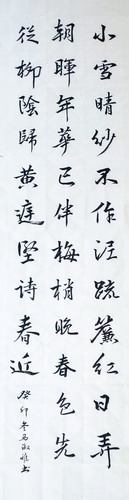 小雪晴紗不作泥疏簾紅日弄
朝暉年華已伴梅梢晚春色先
從柳陰歸黃庭堅詩春近
癸卯冬馬淑惟書